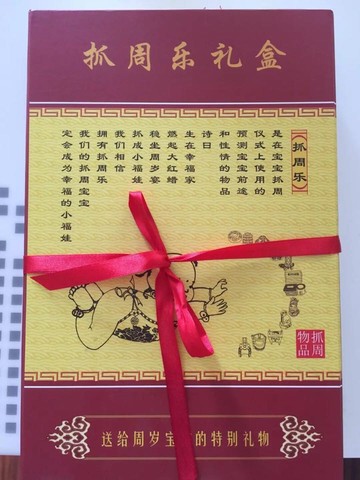 抓周乐礼盒
【抓周乐】
是在宝宝抓周
仪式上使用的
预测宝宝前途
和性情的物品
诗曰
生在幸福家
燃起大红蜡
稳坐周岁宴
抓成小福娃
我们相信
拥有抓周乐
我们的抓周宝宝
定会成为幸福的小福娃
抓周
物品
送给周岁宝的特别礼物